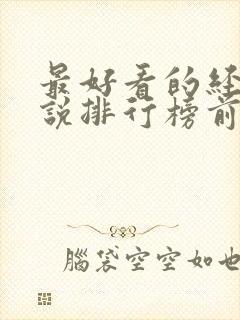 最好看的經
說排行榜前
腦袋空空如也